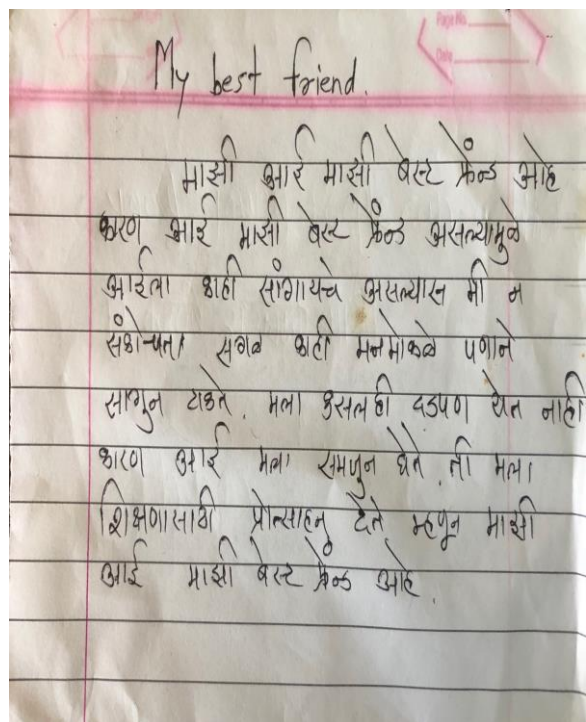 Page No.
Date
My best friend.
माझी आई माझी बेस्ट फ्रेंन्ड आहे
कारण आई माझी बेस्ट फ्रेंन्ड असल्यामुळे
आईला काही सांगायचे असल्यास मी न
संकोचता सगळ काही मनमोकळे पणाने
सांगुन टाकते. मला कसलही दडपण येत नाही
कारण आई मला समजुन घेते. ती मला
शिक्षणासाठी प्रोत्साहन देते म्हणून माझी
आई माझी बेस्ट फ्रेंन्ड आहे.